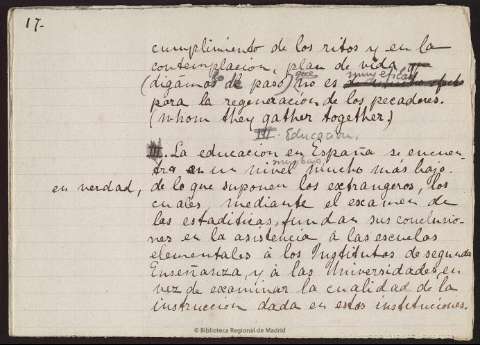 17-
cumplimiento de los ritos y en la
contemplacion, plan de vida,
(digámoslo de paso) que no es muy eficaz
para la regeneración de los pecadores.
(whom they gather together,)
III - Educacion.
III. La educación en España se encuen-
tra en un nivel mucho más bajo
en verdad, de lo que suponen los extrangeros, los
cuales, mediante el examen de
las estadísticas, fundan sus conclusio-
nes en la asistencia á las escuelas
elementales á los Institutos de segunda
Enseñanza, y á las Universidades, en
vez de examinar la cualidad de la
instruccion dada en estas instituciones.
© Biblioteca Regional de Madrid